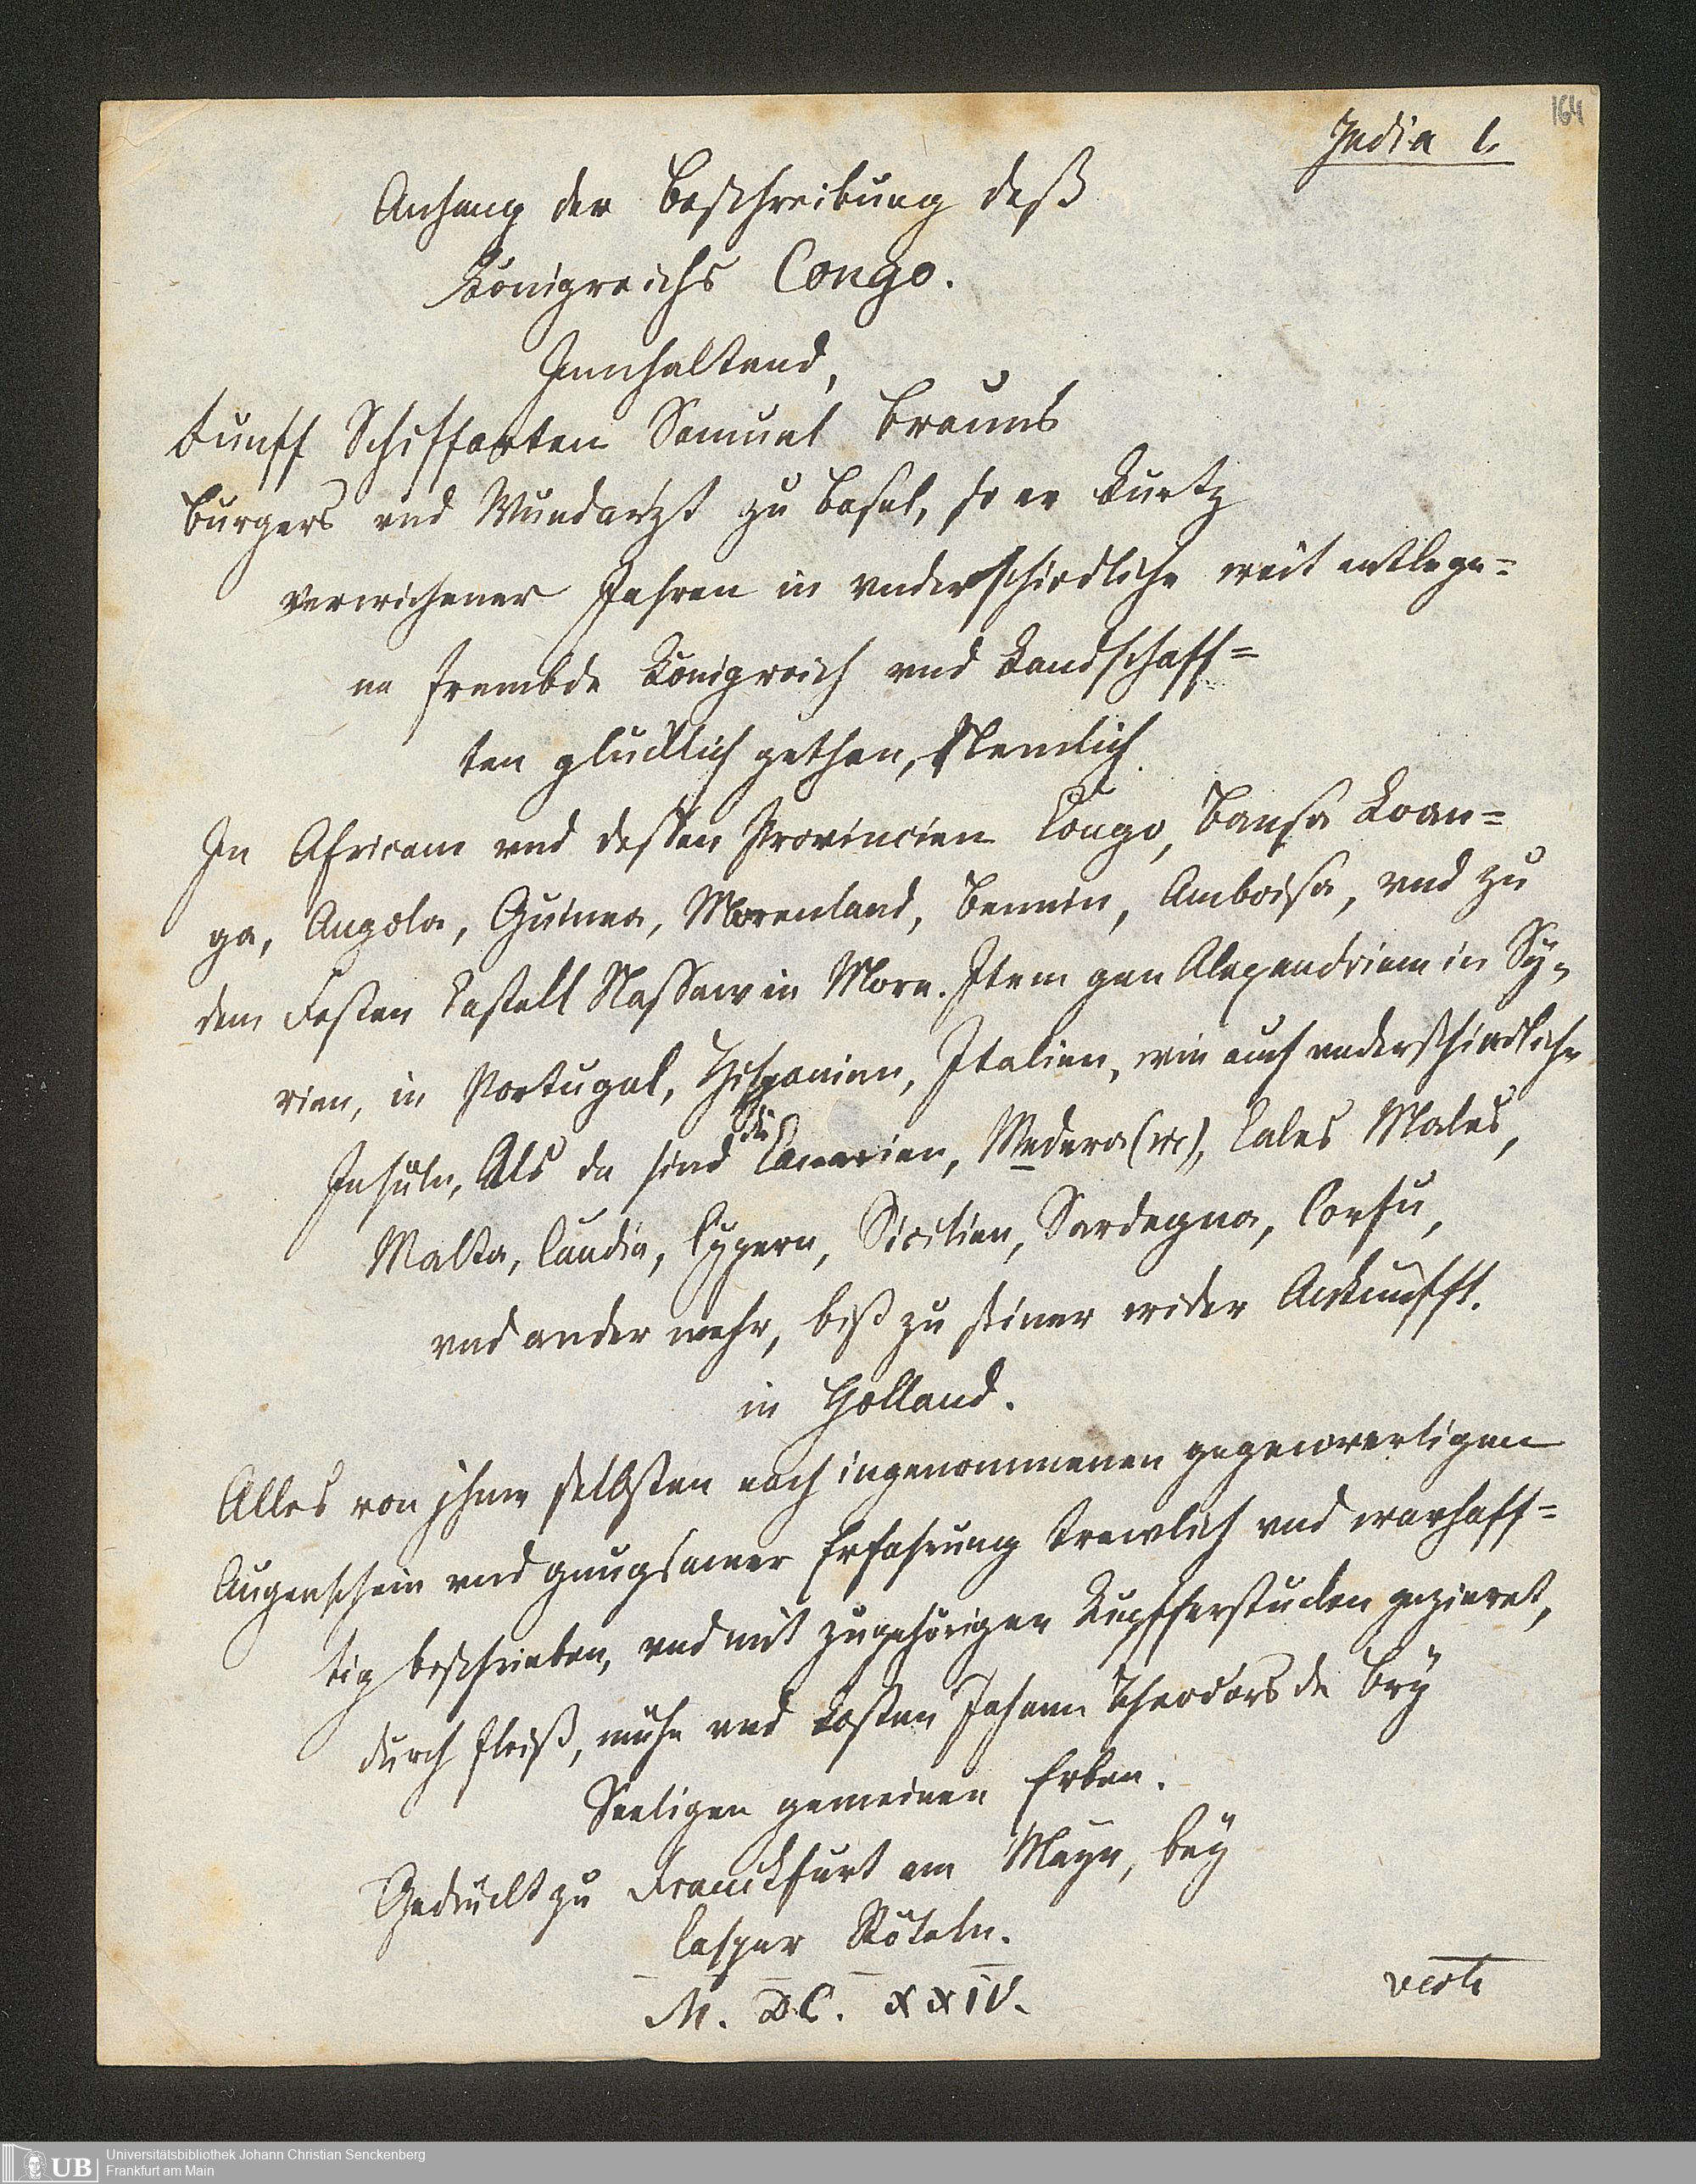 164
India 1.
Anhang der Beschreibung deß
Königreichs Congo.
Innhaltend,
Funff Schiffarten Samuel Brauns
Burgers vnd Wundartzt zu Basel, so er kurtz
verwichener Jahren in vnderschiedliche weit entlege=
ne frembde Königreich vnd Landschaff=
ten glücklich gethan, Nemlich
In Africam vnd dessen Provincien Congo, Bansa Loan=
ga, Angola, Guinea, Morenland, Bennin, Amboisa, vnd zu
dem Festen Castell Nassaw in More. Item gen Alexandriam in Sy=
rien, in Portugal, Hispanien, Italien, wie auch vnderschiedliche
Insuln, Als da sind die Canarien, Medera (sic), Cales Males,
Malta, Candia, Cypern, Sicilien, Sardegna, Corfu,
vnd ander mehr, biß zu seiner wider Ankunfft.
in Holland.
Alles von jhme selbsten nach ingenommenen gegenwertigen
Augenschein vnd gnugsamer Erfahrung trewlich vnd warhaff=
tig beschrieben, vnd mit zugehörigen Kupfferstucken gezieret,
durch fleiß, mühe vnd kosten Johann Theodors de Bry
Seeligen gemeinen Erben.
Gedruckt zu Franckfurt am Mayn, bey
Caspar Röteln.
M. DC. XXIV.
verte
UB Universitätsbibliothek Johann Christian Senckenberg
Frankfurt am Main